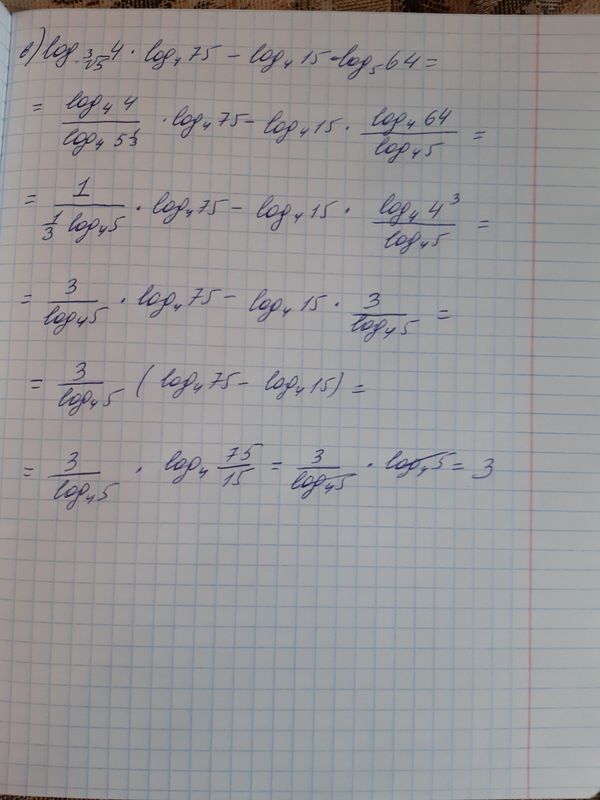 в) log_∛5 4 · log₄ 75 − log₄ 15 · log₅ 64 =
= (log₄ 4)/(log₄ 5^(1/3)) · log₄ 75 − log₄ 15 · (log₄ 64)/(log₄ 5) =
= 1/(1/3 log₄ 5) · log₄ 75 − log₄ 15 · (log₄ 4³)/(log₄ 5) =
= 3/(log₄ 5) · log₄ 75 − log₄ 15 · 3/(log₄ 5) =
= 3/(log₄ 5) (log₄ 75 − log₄ 15) =
= 3/(log₄ 5) · log₄ 75/15 = 3/(log₄ 5) · log₄ 5 = 3